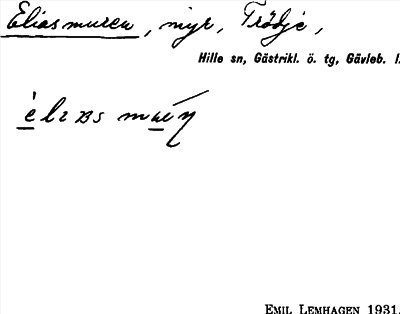 Eliasmuren, myr, Trödje,
Hille sn, Gästrikl. ö. tg, Gävleb. l.
EMIL LEMHAGEN 1931.